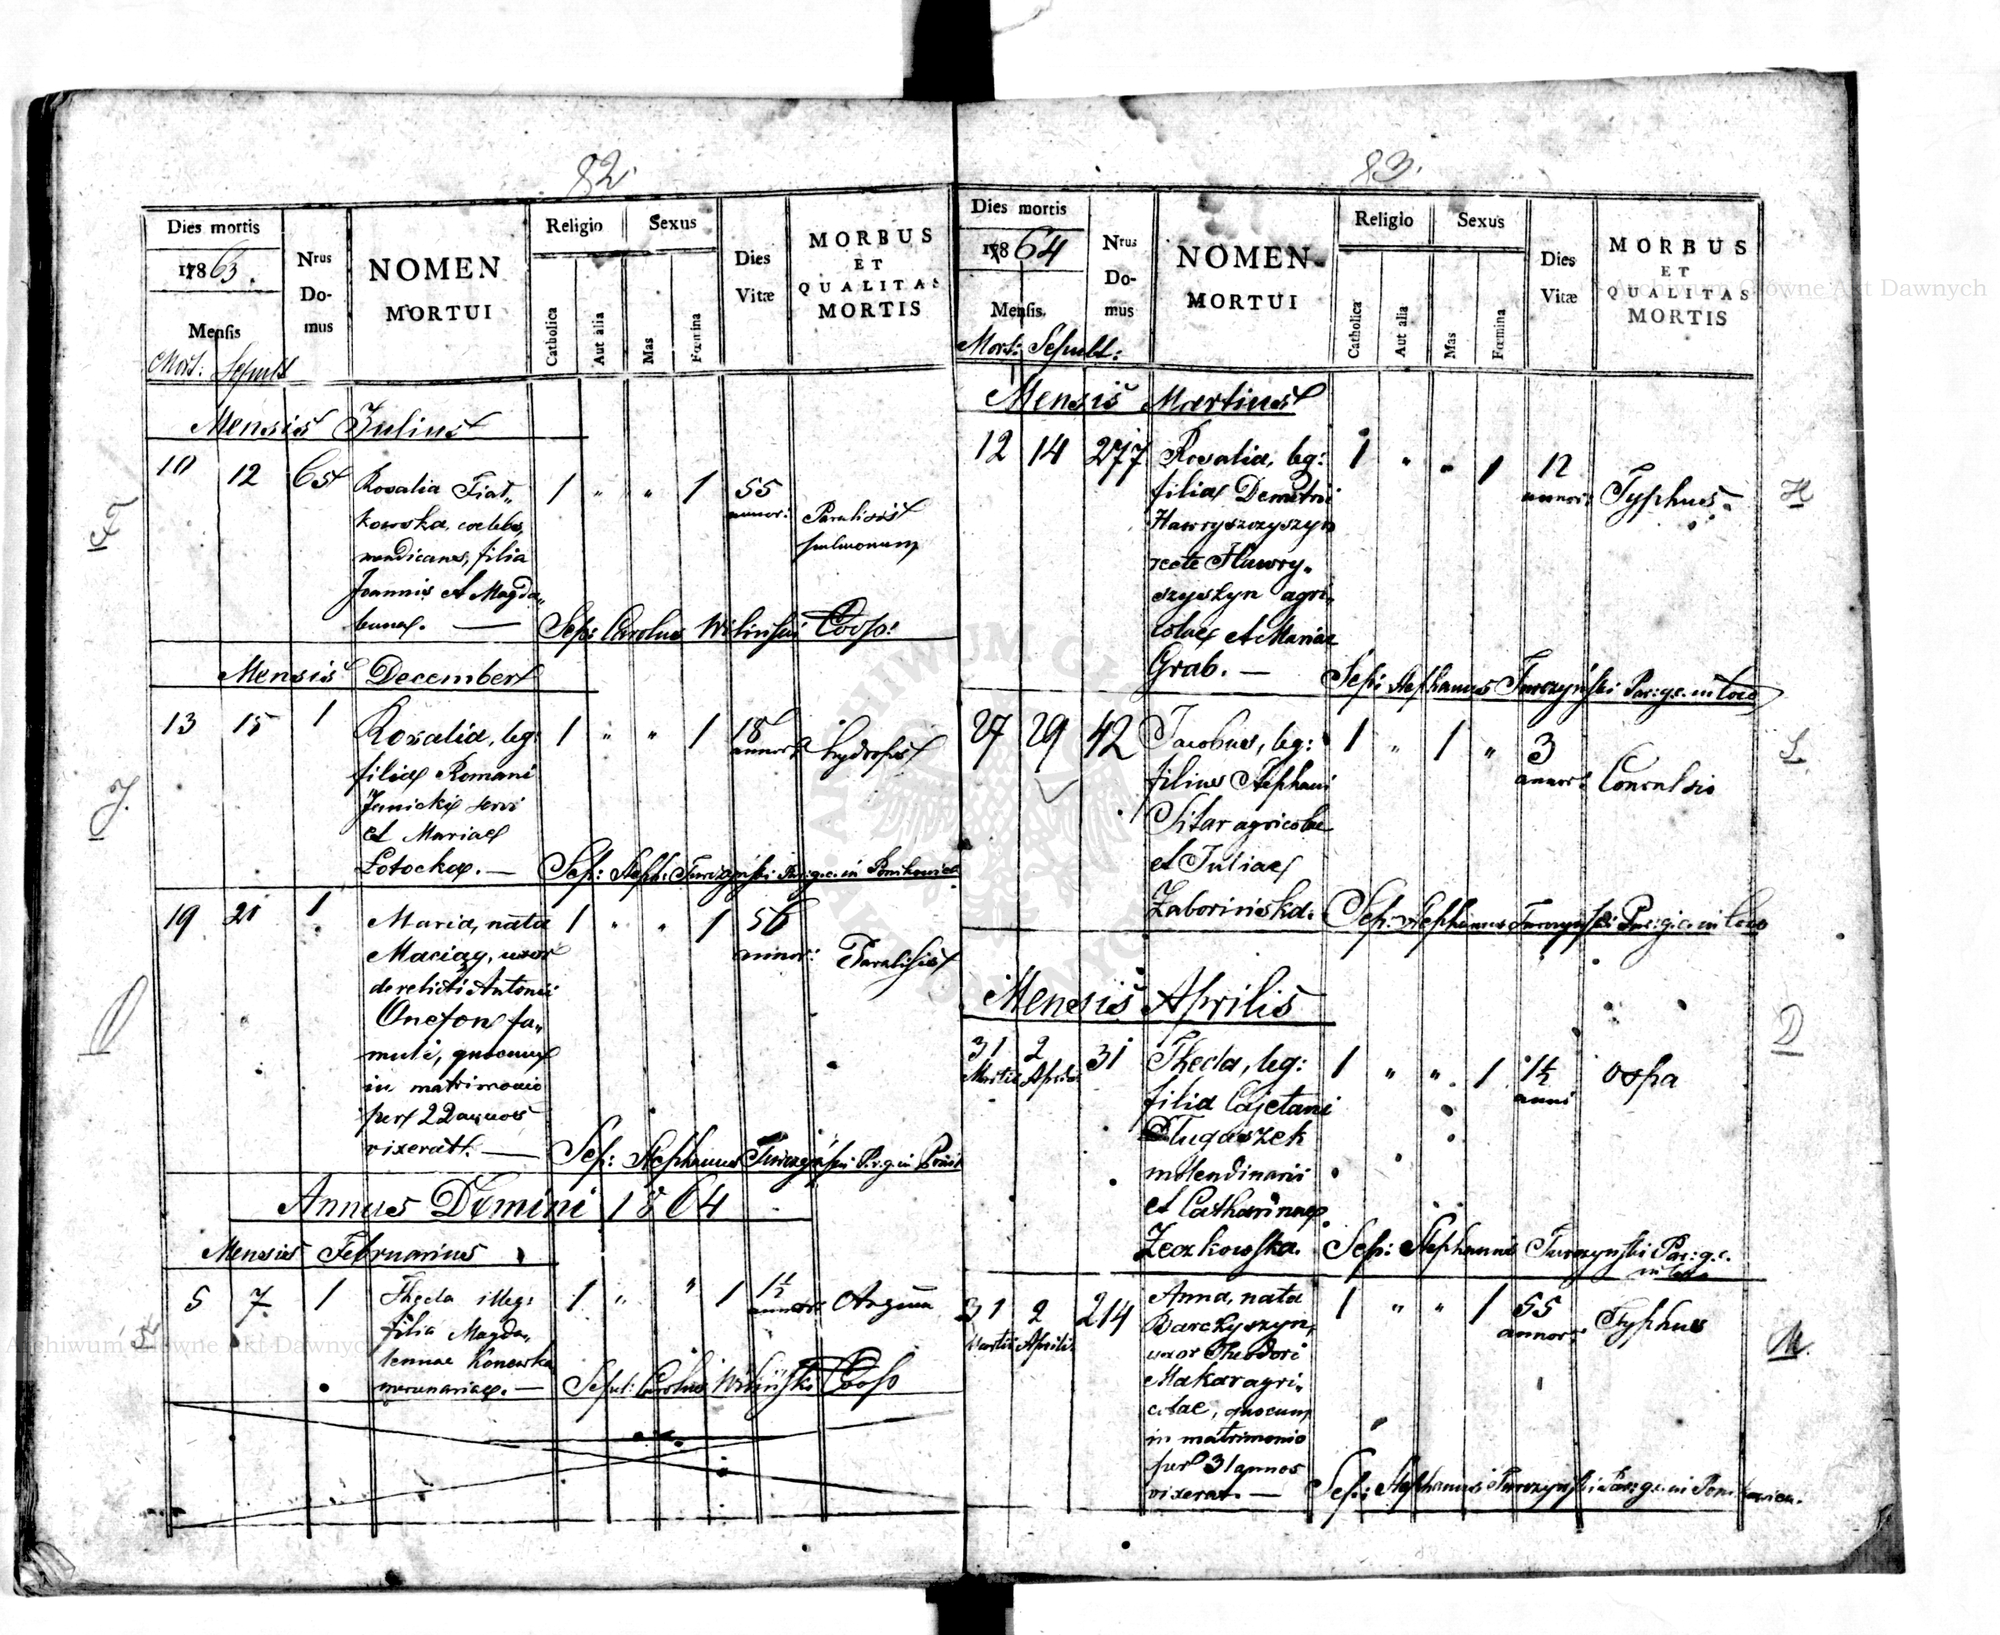 82.
Dies mortis
1863.
Mensis
Mort: Sepult
Nrus
Do-
mus
NOMEN
MORTUI
Religio
Catholica
Aut alia
Sexus
Mas
Fœmina
Dies
Vitæ
MORBUS
ET
QUALITAS
MORTIS
Mensis Julius
10 12 65 Rosalia Fiat„ 1 „ „ 1 55 annor: Paralisis
kowska, coelebs, pulmonum
mendicans, filia
Joannis et Magda„
lenae. —
Sep: Carolus Wiliński Coop:
Mensis December
13 15 1 Rosalia, leg: 1 „ „ 1 18 annor: hydrops
filia Romani
Janicki servi
et Mariae
Łotocka. —
Sep: Steph: Turczyński Par: g.c. in Ponikowica
19 21 1 Maria, nata 1 „ „ 1 56 annor: Paralisis
Maciąg, uxor
derelicti Antonii
Onefon fa„
muli, quocum
in matrimonio
per 22 annos
vixerat. —
Sep: Stephanus Turczyński P. r. g. in Ponik
Annus Domini 1864
Mensis Februarius
5 7. 1 Thecla illeg: 1 „ „ 1 1½ annor: Angina
filia Magda„
lenae Konewka
mercenariae. —
Sepul: Carolus Wiliński Coop
83.
Dies mortis
1864
Mensis
Mort: Sepult:
Nrus
Do-
mus
NOMEN
MORTUI
Religio
Catholica
Aut alia
Sexus
Mas
Fœmina
Dies
Vitæ
MORBUS
ET
QUALITAS
MORTIS
Mensis Martius
12 14 277 Rosalia, leg: 1 „ „ 1 12 annor: Typhus.
filia Demetrii
Hawryszczyszyn
recte Hawry„
szyszyn agri„
colae et Mariae
Grab. —
Sep: Stephanus Turczyński Par: g.c. in loco
27 29 42 Jacobus, leg: 1 „ 1 „ 3 annor: Convulsio
filius Stephani
Sitar agricolae
et Juliae
Zaborińska.
Sep: Stephanus Turczyński Par: g.c. in loco
Mensis Aprilis
31 Martii 2 Aprilis 31 Thecla, leg: 1 „ „ 1 1½ anni Ospa
filia Cajetani
Długaszek
molendinarii
et Catharinae
Zeczkowska.
Sep: Stephanus Turczyński Par: g.c.
in loco
31 Martii 2 Aprilis 214 Anna, nata 1 „ „ 1 55 annor: Typhus
Barczyszyn,
uxor Theodori
Makar agri„
colae, quocum
in matrimonio
per 31 annos
vixerat. —
Sep: Stephanus Turczyński Par: g.c. in Ponikowica.
H
S.
D
M.
J.
O
Archiwum Główne Akt Dawnych
Archiwum Główne Akt Dawnych